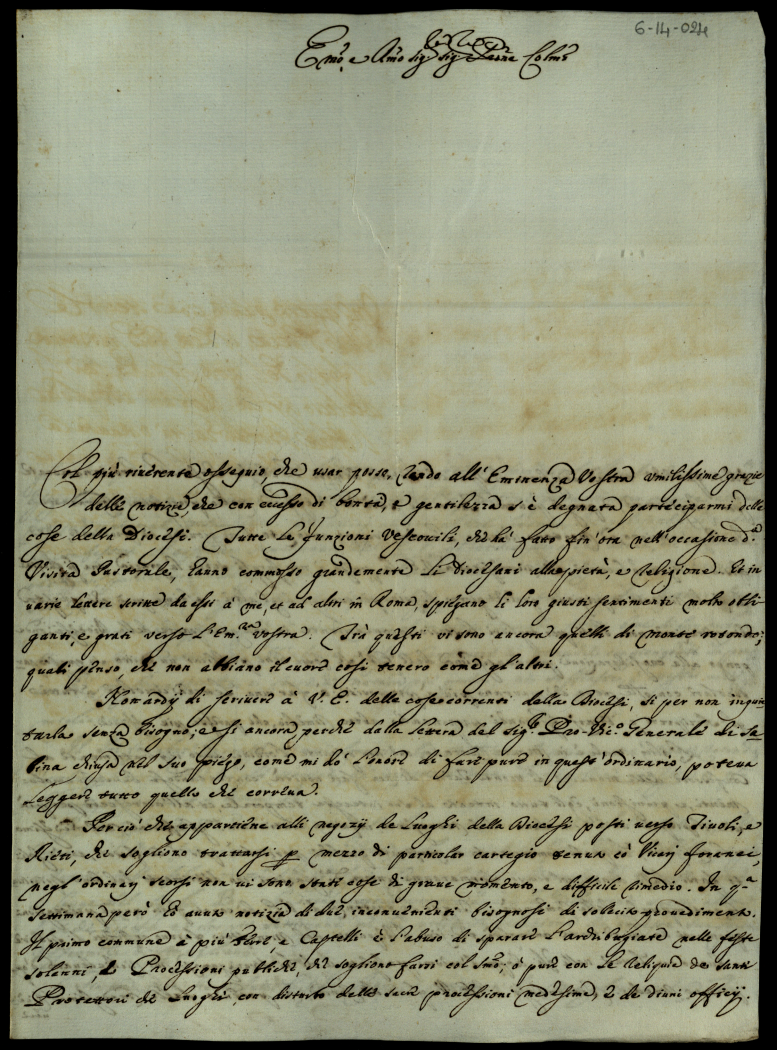 6-14-024
Emo. e Rmo sig sig Prne Colmo
Col più riverente ossequio, che usar posso, rendo all'Eminenza Vostra umilissime grazie
delle notizie che con eccesso di bontà, e gentilezza s'è degnata participarmi delle
cose della Diocesi. Tutte le funzioni Vescovili, che hà fatto fin'ora nell'occasione d.a
Visita Pastorale, hanno commosso grandemente li Diocesani alla pietà, e religione. Et in
varie lettere scritte da essi à me, et ad altri in Roma, spiegano li loro giusti sentimenti molto obli
ganti, e grati verso l'Em.za vostra. Trà questi vi sono ancora quelli di monte rotondo;
quali penso, che non abbiano il cuore così tenero come gl'altri.
Non ardij di scrivere à V. E. delle cose correnti della Diocesi, sì per non inquie
tarla senza bisogno, e sì ancora perche dalla lettera del sig.r Pro-Vic.o Generale di Sa
bina chiusa nel suo piego, come mi dò l'onore di fare pure in quest'ordinario, poteva
leggere tutto quello che correva.
Per ciò che appartiene alli negozij de Luoghi della Diocesi posti verso Tivoli, e
Rieti, che sogliono trattarsi p mezzo di particolar cartegio tenuto cò Vicarj foranei,
negl'ordinarj scorsi non vi sono stati cose di grave momento, e difficile rimedio. In q.a
settimana però hò avuto notizia di due inconvenienti bisognosi di sollecito provedimento.
Il primo commune à più Terre, e Castelli è l'abuso di sparare l'archibugiate nelle feste
solenni, e Processioni publiche, che sogliono farsi col Smo, ò pure con le Reliquie de santi
Protettori de Luoghi, con disturbo delle sacre processioni medesime, e de divini officij.